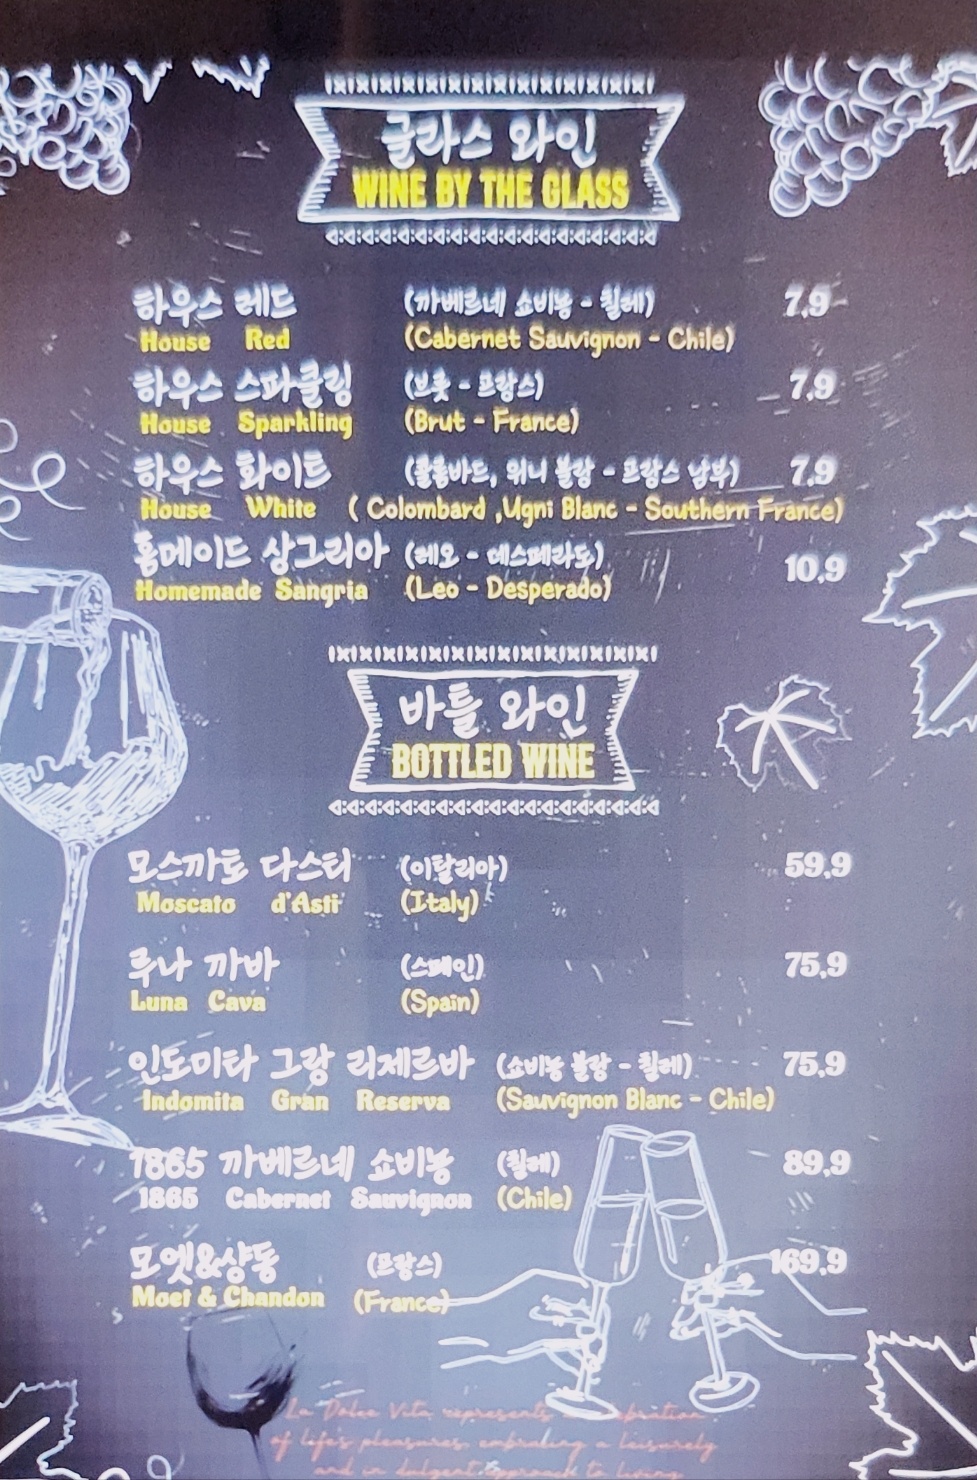 글라스 와인
WINE BY THE GLASS
하우스 레드 (까베르네 쇼비뇽 - 칠레) 7,9
House Red (Cabernet Sauvignon - Chile)
하우스 스파클링 (브룻 - 프랑스) 7,9
House Sparkling (Brut - France)
하우스 화이트 (콜롬바드, 위니 블랑 - 프랑스 남부) 7,9
House White ( Colombard ,Ugni Blanc - Southern France)
홈메이드 상그리아 (레오 - 데스페라도) 10,9
Homemade Sangria (Leo - Desperado)
바틀 와인
BOTTLED WINE
모스까토 다스티 (이탈리아) 59,9
Moscato d'Asti (Italy)
루나 까바 (스페인) 75,9
Luna Cava (Spain)
인도미타 그랑 리제르바 (쇼비뇽 블랑 - 칠레) 75,9
Indomita Gran Reserva (Sauvignon Blanc - Chile)
1865 까베르네 쇼비뇽 (칠레) 89,9
1865 Cabernet Sauvignon (Chile)
모엣&샹동 (프랑스) 169,9
Moet & Chandon (France)
La Dolce Vita represents
of life's pleasures, embracing a leisurely
and to living